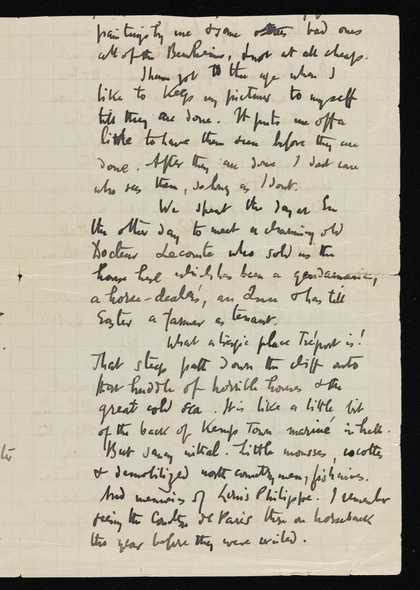 paintings by me & some other bad ones
all of the Bonheims, & not at all cheap.
I have got to the age when I
like to keep my pictures to myself
till they are done. It puts me off a
little to have them seen before they are
done. After they are done I dont care
who sees them, so long as I dont.
We spent the day at Eu
the other day to meet a charming old
Docteur Lecomte who sold us the
house here which has been a gendarmerie,
a horse-dealers', an Inn & has till
Easter a farmer as tenant.
What a tragic place Tréport is!
That steep path down the cliff onto
that huddle of horrible houses & the
great cold sea. It is like a little bit
of the back of Kemp Town mariné in hell.
But saucy withal. Little mousses, cocottes
& demobilized north countrymen, fishwives.
And memories of Louis Philippe. I remember
seeing the Comte de Paris there on horseback
the year before they were exiled.